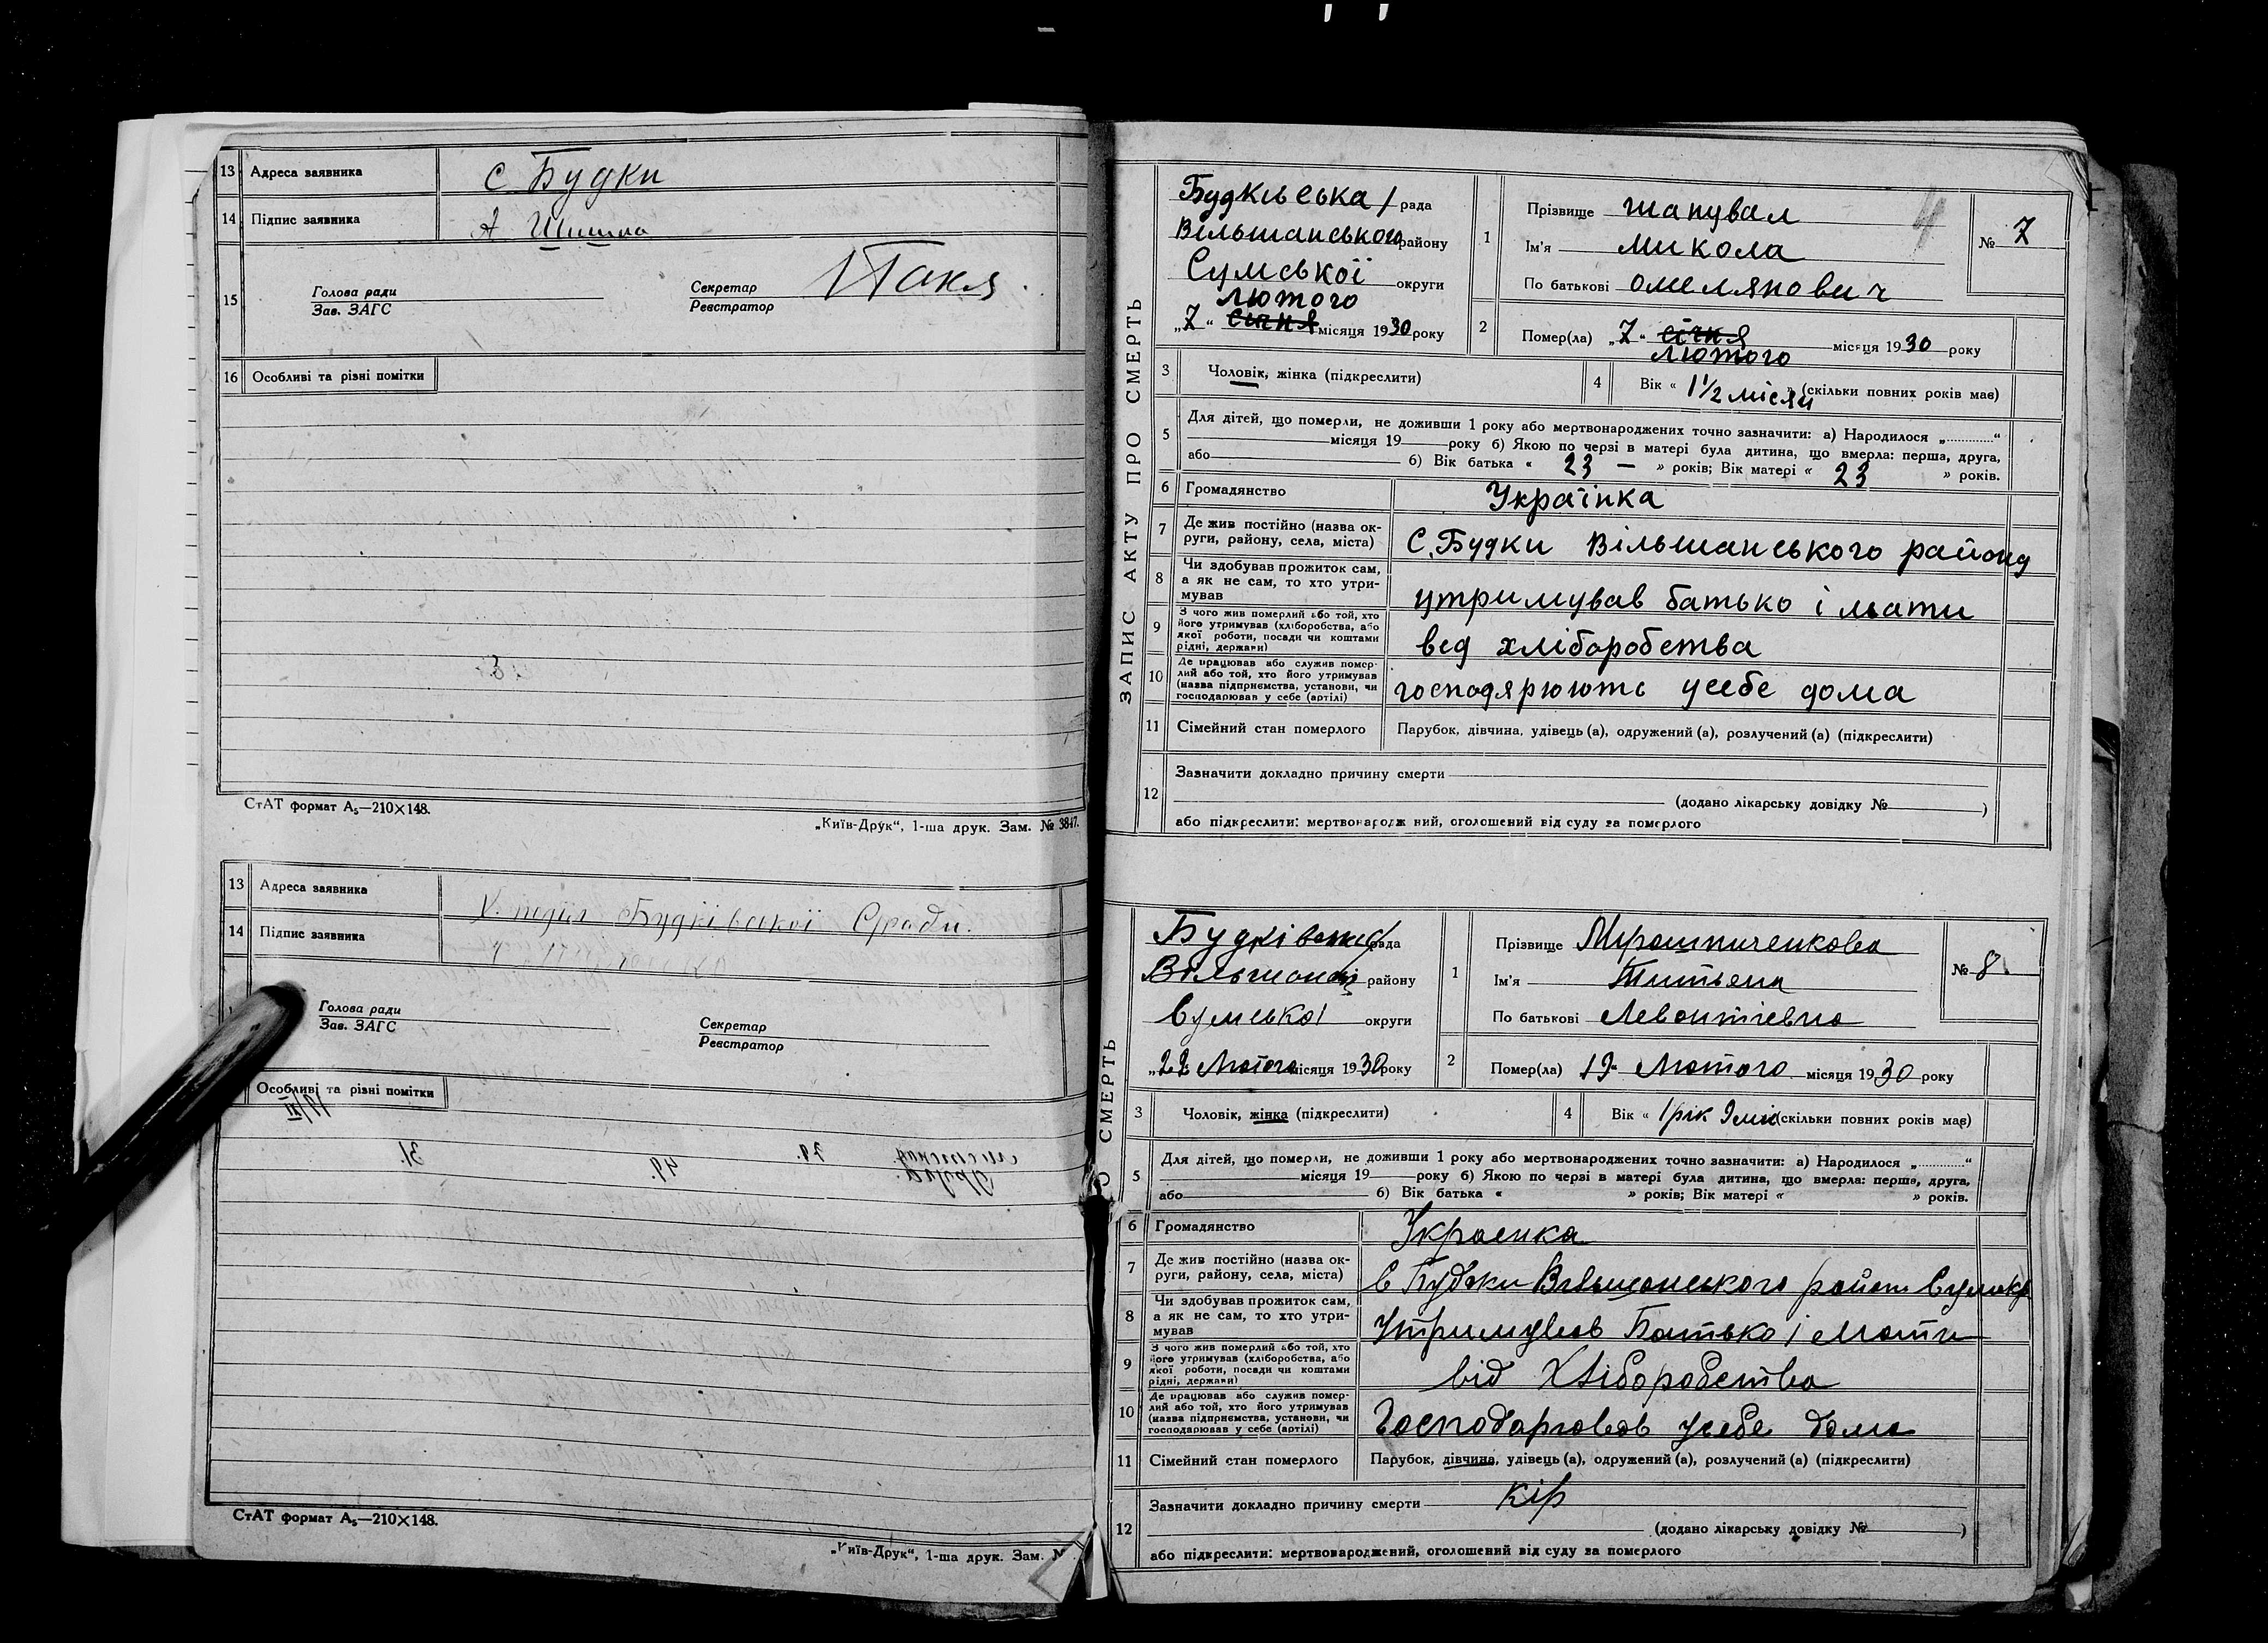 13 Адреса заявника с. Будки
14 Підпис заявника А
15 Голова ради
Зав. ЗАГС
Секретар
Реєстратор
16 Особливі та різні помітки
СтАТ формат А₅—210×148.
„Київ-Друк“, 1-ша друк. Зам. № 3847.
13 Адреса заявника Будківської С/ради.
14 Підпис заявника
Голова ради
Зав. ЗАГС
Секретар
Реєстратор
Особливі та різні помітки
СтАТ формат А₅—210×148.
„Київ-Друк“, 1-ша друк. Зам. №
ЗАПИС АКТУ ПРО СМЕРТЬ
Будківська рада
Вільшанського району
Сумської округи
лютого
„7“ січня місяця 1930 року
1 Прізвище шапувал
Ім'я микола
По батькові омелянович
№ 7
4
2 Помер(ла) „7“ січня місяця 1930 року
лютого
3 Чоловік, жінка (підкреслити)
4 Вік « 1½ місяц » (скільки повних років має)
5 Для дітей, що померли, не доживши 1 року або мертвонароджених точно зазначити: а) Народилося „............“
місяця 19 року б) Якою по черзі в матері була дитина, що вмерла: перша, друга,
або б) Вік батька « 23 — » років; Вік матері « 23 » років.
6 Громадянство Українка
7 Де жив постійно (назва ок-
руги, району, села, міста) С. Будки Вільшанського району
8 Чи здобував прожиток сам,
а як не сам, то хто утри-
мував утримував батько і мати
9 З чого жив померлий або той, хто
його утримував (хліборобства, або
якої роботи, посади чи коштами
рідні, держави) вед хліборобства
10 Де працював або служив помер-
лий або той, хто його утримував
(назва підприємства, установи, чи
господарював у себе (артілі) господярюють усебе дома
11 Сімейний стан померлого Парубок, дівчина, удівець (а), одружений (а), розлучений (а) (підкреслити)
12 Зазначити докладно причину смерти
(додано лікарську довідку № )
або підкреслити: мертвонароджений, оголошений від суду за померлого
СМЕРТЬ
рада
району
Сумської округи
„22“ Лютого місяця 1930 року
1 Прізвище Мірошниченкова
Ім'я Титьяна
По батькові Левонтіевна
№ 8
2 Помер(ла) 19 „ Лютого місяця 1930 року
3 Чоловік, жінка (підкреслити)
4 Вік « 1 рік 9 міс (скільки повних років має)
5 Для дітей, що померли, не доживши 1 року або мертвонароджених точно зазначити: а) Народилося „............“
місяця 19 року б) Якою по черзі в матері була дитина, що вмерла: перша, друга,
або б) Вік батька « » років; Вік матері « » років.
6 Громадянство Украенка
7 Де жив постійно (назва ок-
руги, району, села, міста) с Будки Вільшанського
8 Чи здобував прожиток сам,
а як не сам, то хто утри-
мував Утримував Батько і Мати
9 З чого жив померлий або той, хто
його утримував (хліборобства, або
якої роботи, посади чи коштами
рідні, держави) від Хліборобства
10 Де працював або служив помер-
лий або той, хто його утримував
(назва підприємства, установи, чи
господарював у себе (артілі) Господарював усебе дома
11 Сімейний стан померлого Парубок, дівчина, удівець (а), одружений (а), розлучений (а) (підкреслити)
12 Зазначити докладно причину смерти кір
(додано лікарську довідку № )
або підкреслити: мертвонароджений, оголошений від суду за померлого